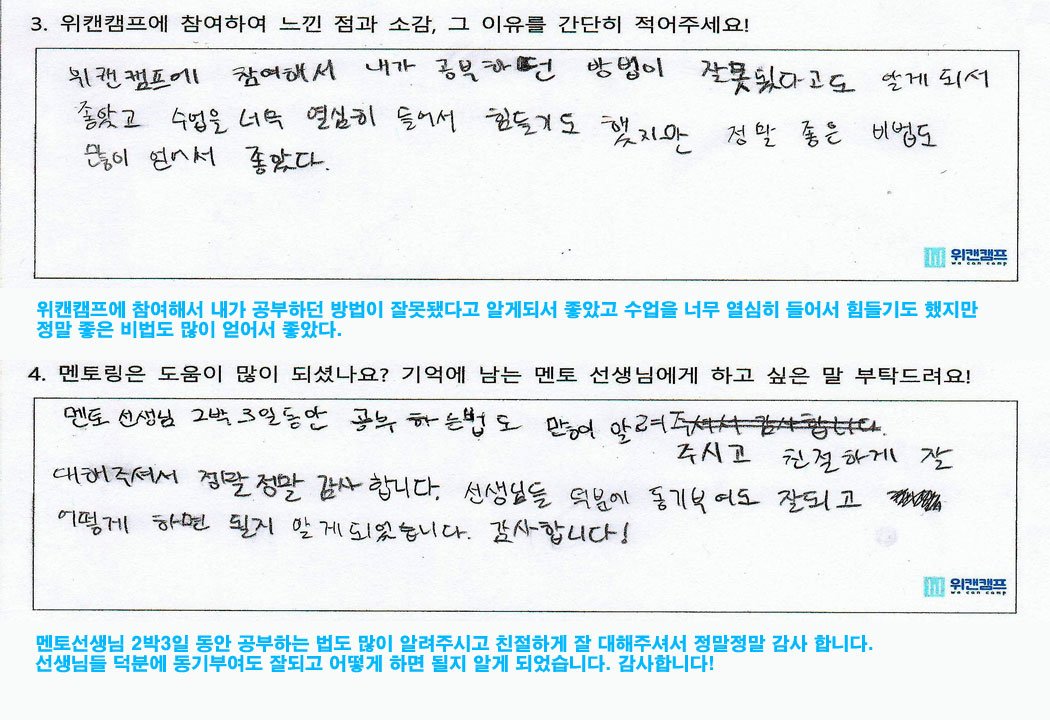 3. 위캔캠프에 참여하여 느낀 점과 소감, 그 이유를 간단히 적어주세요!
위캔캠프에 참여해서 내가 공부하던 방법이 잘못됬다고도 알게 되서
좋았고 수업을 너무 열심히 들어서 힘들기도 했지만 정말 좋은 비법도
많이 얻어서 좋았다.
위캔캠프
we can camp
위캔캠프에 참여해서 내가 공부하던 방법이 잘못됐다고 알게되서 좋았고 수업을 너무 열심히 들어서 힘들기도 했지만
정말 좋은 비법도 많이 얻어서 좋았다.
4. 멘토링은 도움이 많이 되셨나요? 기억에 남는 멘토 선생님에게 하고 싶은 말 부탁드려요!
멘토 선생님 2박 3일동안 공부 하는법 도 많이 알려주셔서 감사합니다.
주시고 친절하게 잘
대해주셔서 정말정말 감사합니다. 선생님들 덕분에 동기부여도 잘되고
어떻게 하면 될지 알게되었습니다. 감사합니다!
위캔캠프
we can camp
멘토선생님 2박3일 동안 공부하는 법도 많이 알려주시고 친절하게 잘 대해주셔서 정말정말 감사 합니다.
선생님들 덕분에 동기부여도 잘되고 어떻게 하면 될지 알게 되었습니다. 감사합니다!